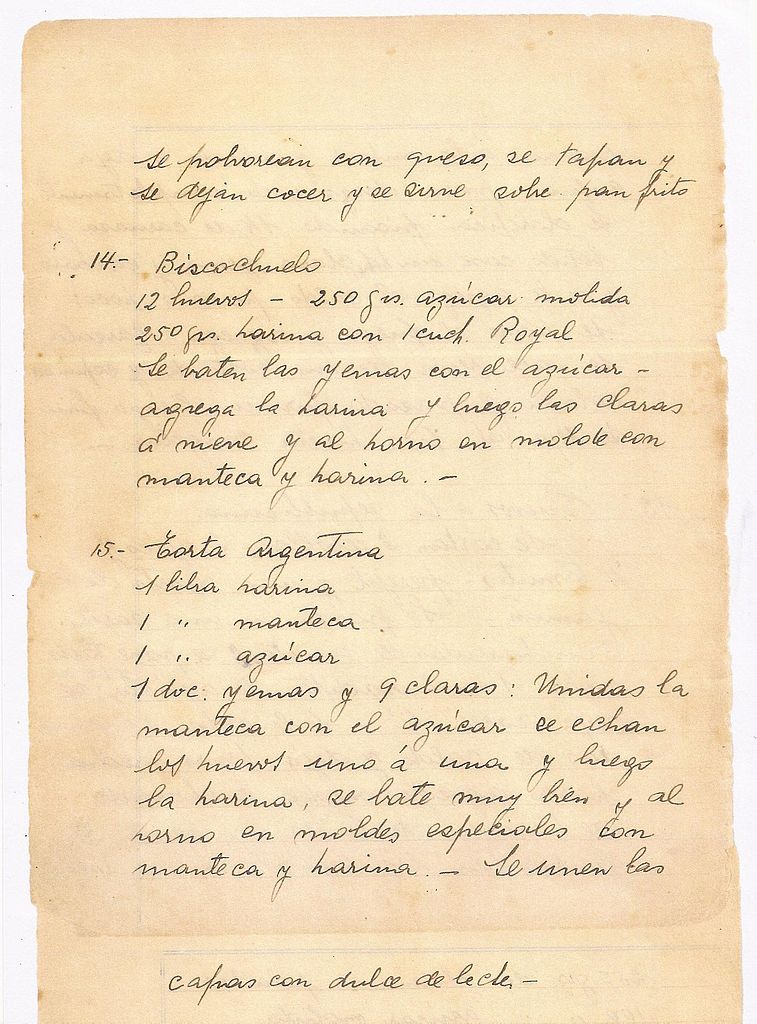 se polvorean con queso, se tapan y
se dejan cocer y se sirve sobre pan frito
14.- Biscochuelo
12 huevos - 250 grs. azúcar molida
250 grs. harina con 1 cuch. Royal
Se baten las yemas con el azúcar -
agrega la harina y luego las claras
á nieve y al horno en molde con
manteca y harina. -
15.- Torta Argentina
1 libra harina
1 " manteca
1 " azúcar
1 doc. yemas y 9 claras: Unidas la
manteca con el azúcar se echan
los huevos uno á una y luego
la harina, se bate muy bien y al
horno en moldes especiales con
manteca y harina. - Se unen las
capas con dulce de leche. -